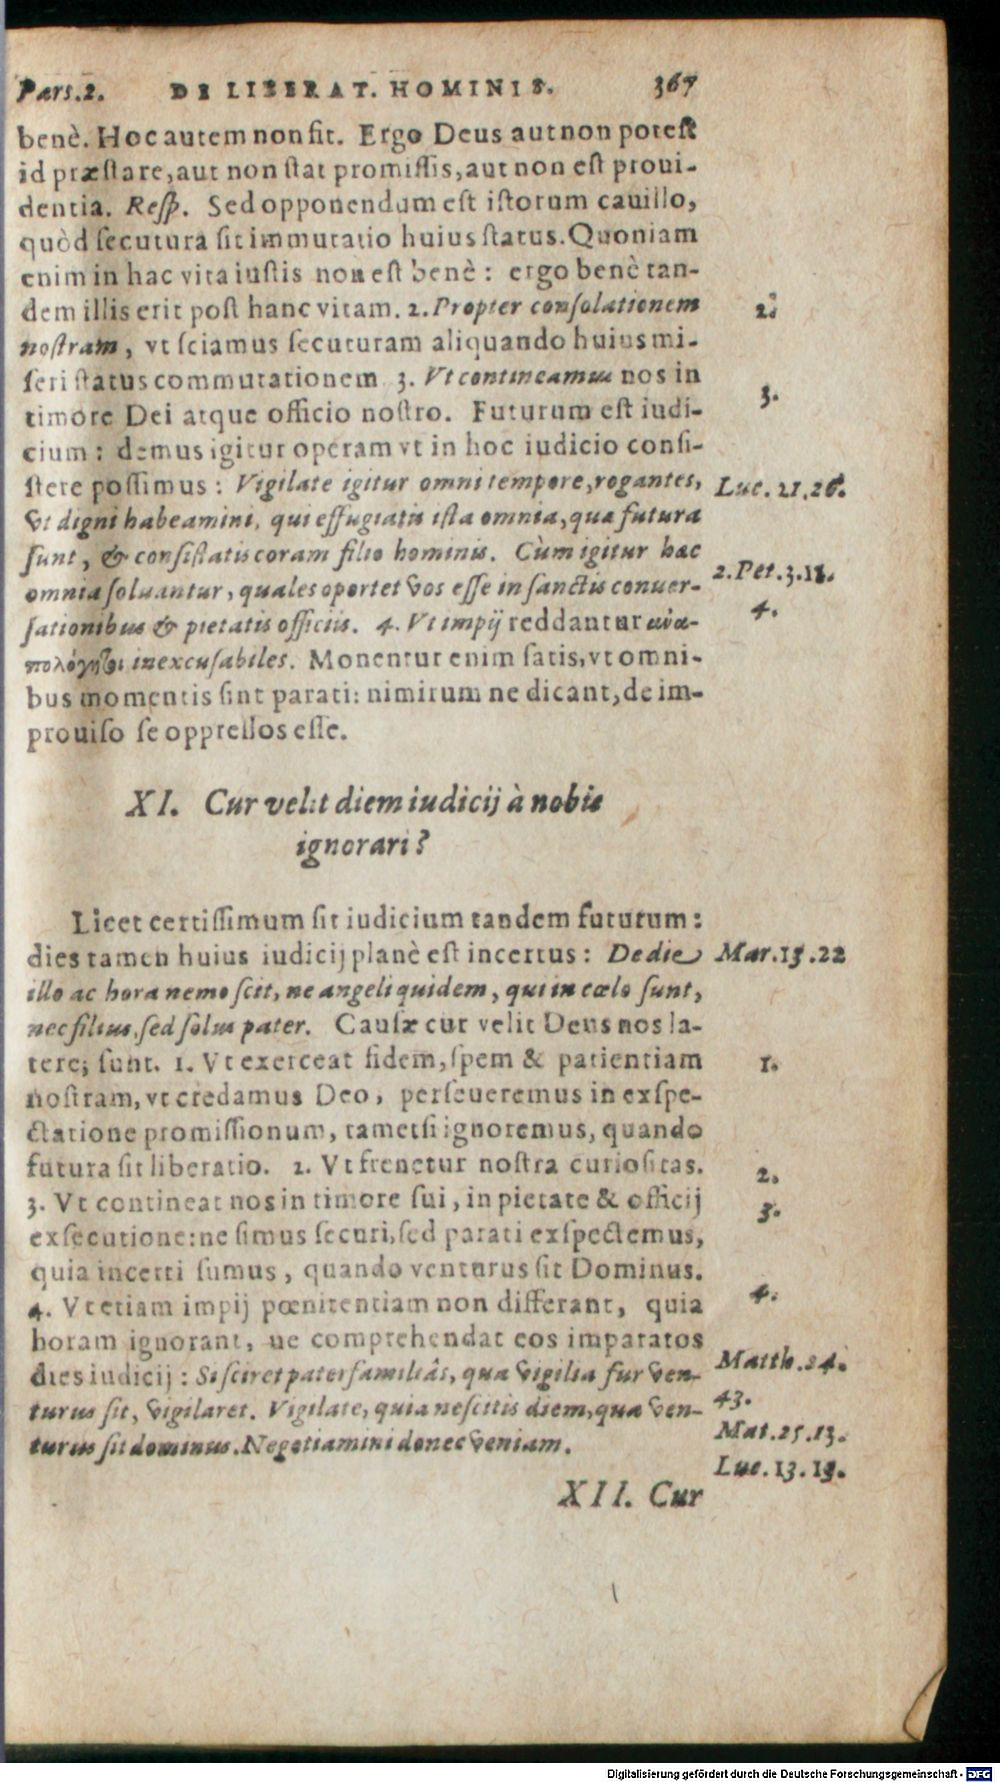 Pars.2. DE LIBERAT. HOMINIS. 367
benè. Hoc autem non fit. Ergo Deus aut non potest
id præstare, aut non stat promissis, aut non est proui-
dentia. Resp. Sed opponendum est istorum cauillo,
quòd secutura sit immutatio huius status. Quoniam
enim in hac vita iustis non est benè: ergo benè tan-
dem illis erit post hanc vitam. 2. Propter consolationem
2.
nostram, vt sciamus secuturam aliquando huius mi-
seri status commutationem 3. Vt contineamus nos in
3.
timore Dei atque officio nostro. Futurum est iudi-
cium: demus igitur operam vt in hoc iudicio consi-
stere possimus: Vigilate igitur omni tempore, rogantes,
Luc. 21.26.
vt digni habeamini, qui effugiatis ista omnia, quæ futura
sunt, & consistatis coram filio hominis. Cùm igitur hæc
2.Pet.3.11.
omnia soluantur, quales oportet vos esse in sanctis conuer-
sationibus & pietatis officiis. 4. Vt impij reddantur ἀνα-
4.
πολόγητοι inexcusabiles. Monentur enim satis, vt omni-
bus momentis sint parati: nimirum ne dicant, de im-
prouiso se oppressos esse.
XI. Cur velit diem iudicij à nobis
ignorari?
Licet certissimum sit iudicium tandem futurum:
dies tamen huius iudicij planè est incertus: De die
Mar.13.22
illo ac hora nemo scit, ne angeli quidem, qui in cœlo sunt,
nec filius, sed solus pater. Causæ cur velit Deus nos la-
tere; sunt. 1. Vt exerceat fidem, spem & patientiam
1.
nostram, vt credamus Deo, perseueremus in exspe-
ctatione promissionum, tametsi ignoremus, quando
futura sit liberatio. 2. Vt frenetur nostra curiositas.
2.
3. Vt contineat nos in timore sui, in pietate & officij
3.
exsecutione: ne simus securi, sed parati exspectemus,
quia incerti sumus, quando venturus sit Dominus.
4. Vt etiam impij pœnitentiam non differant, quia
4.
horam ignorant, ne comprehendat eos imparatos
dies iudicij: Si sciret paterfamiliâs, qua vigilia fur ven-
Matth.24.
43.
turus sit, vigilaret. Vigilate, quia nescitis diem, qua ven-
Mat.25.13.
turus sit dominus. Negotiamini donec veniam.
Luc.13.13.
XII. Cur
Digitalisierung gefördert durch die Deutsche Forschungsgemeinschaft - DFG